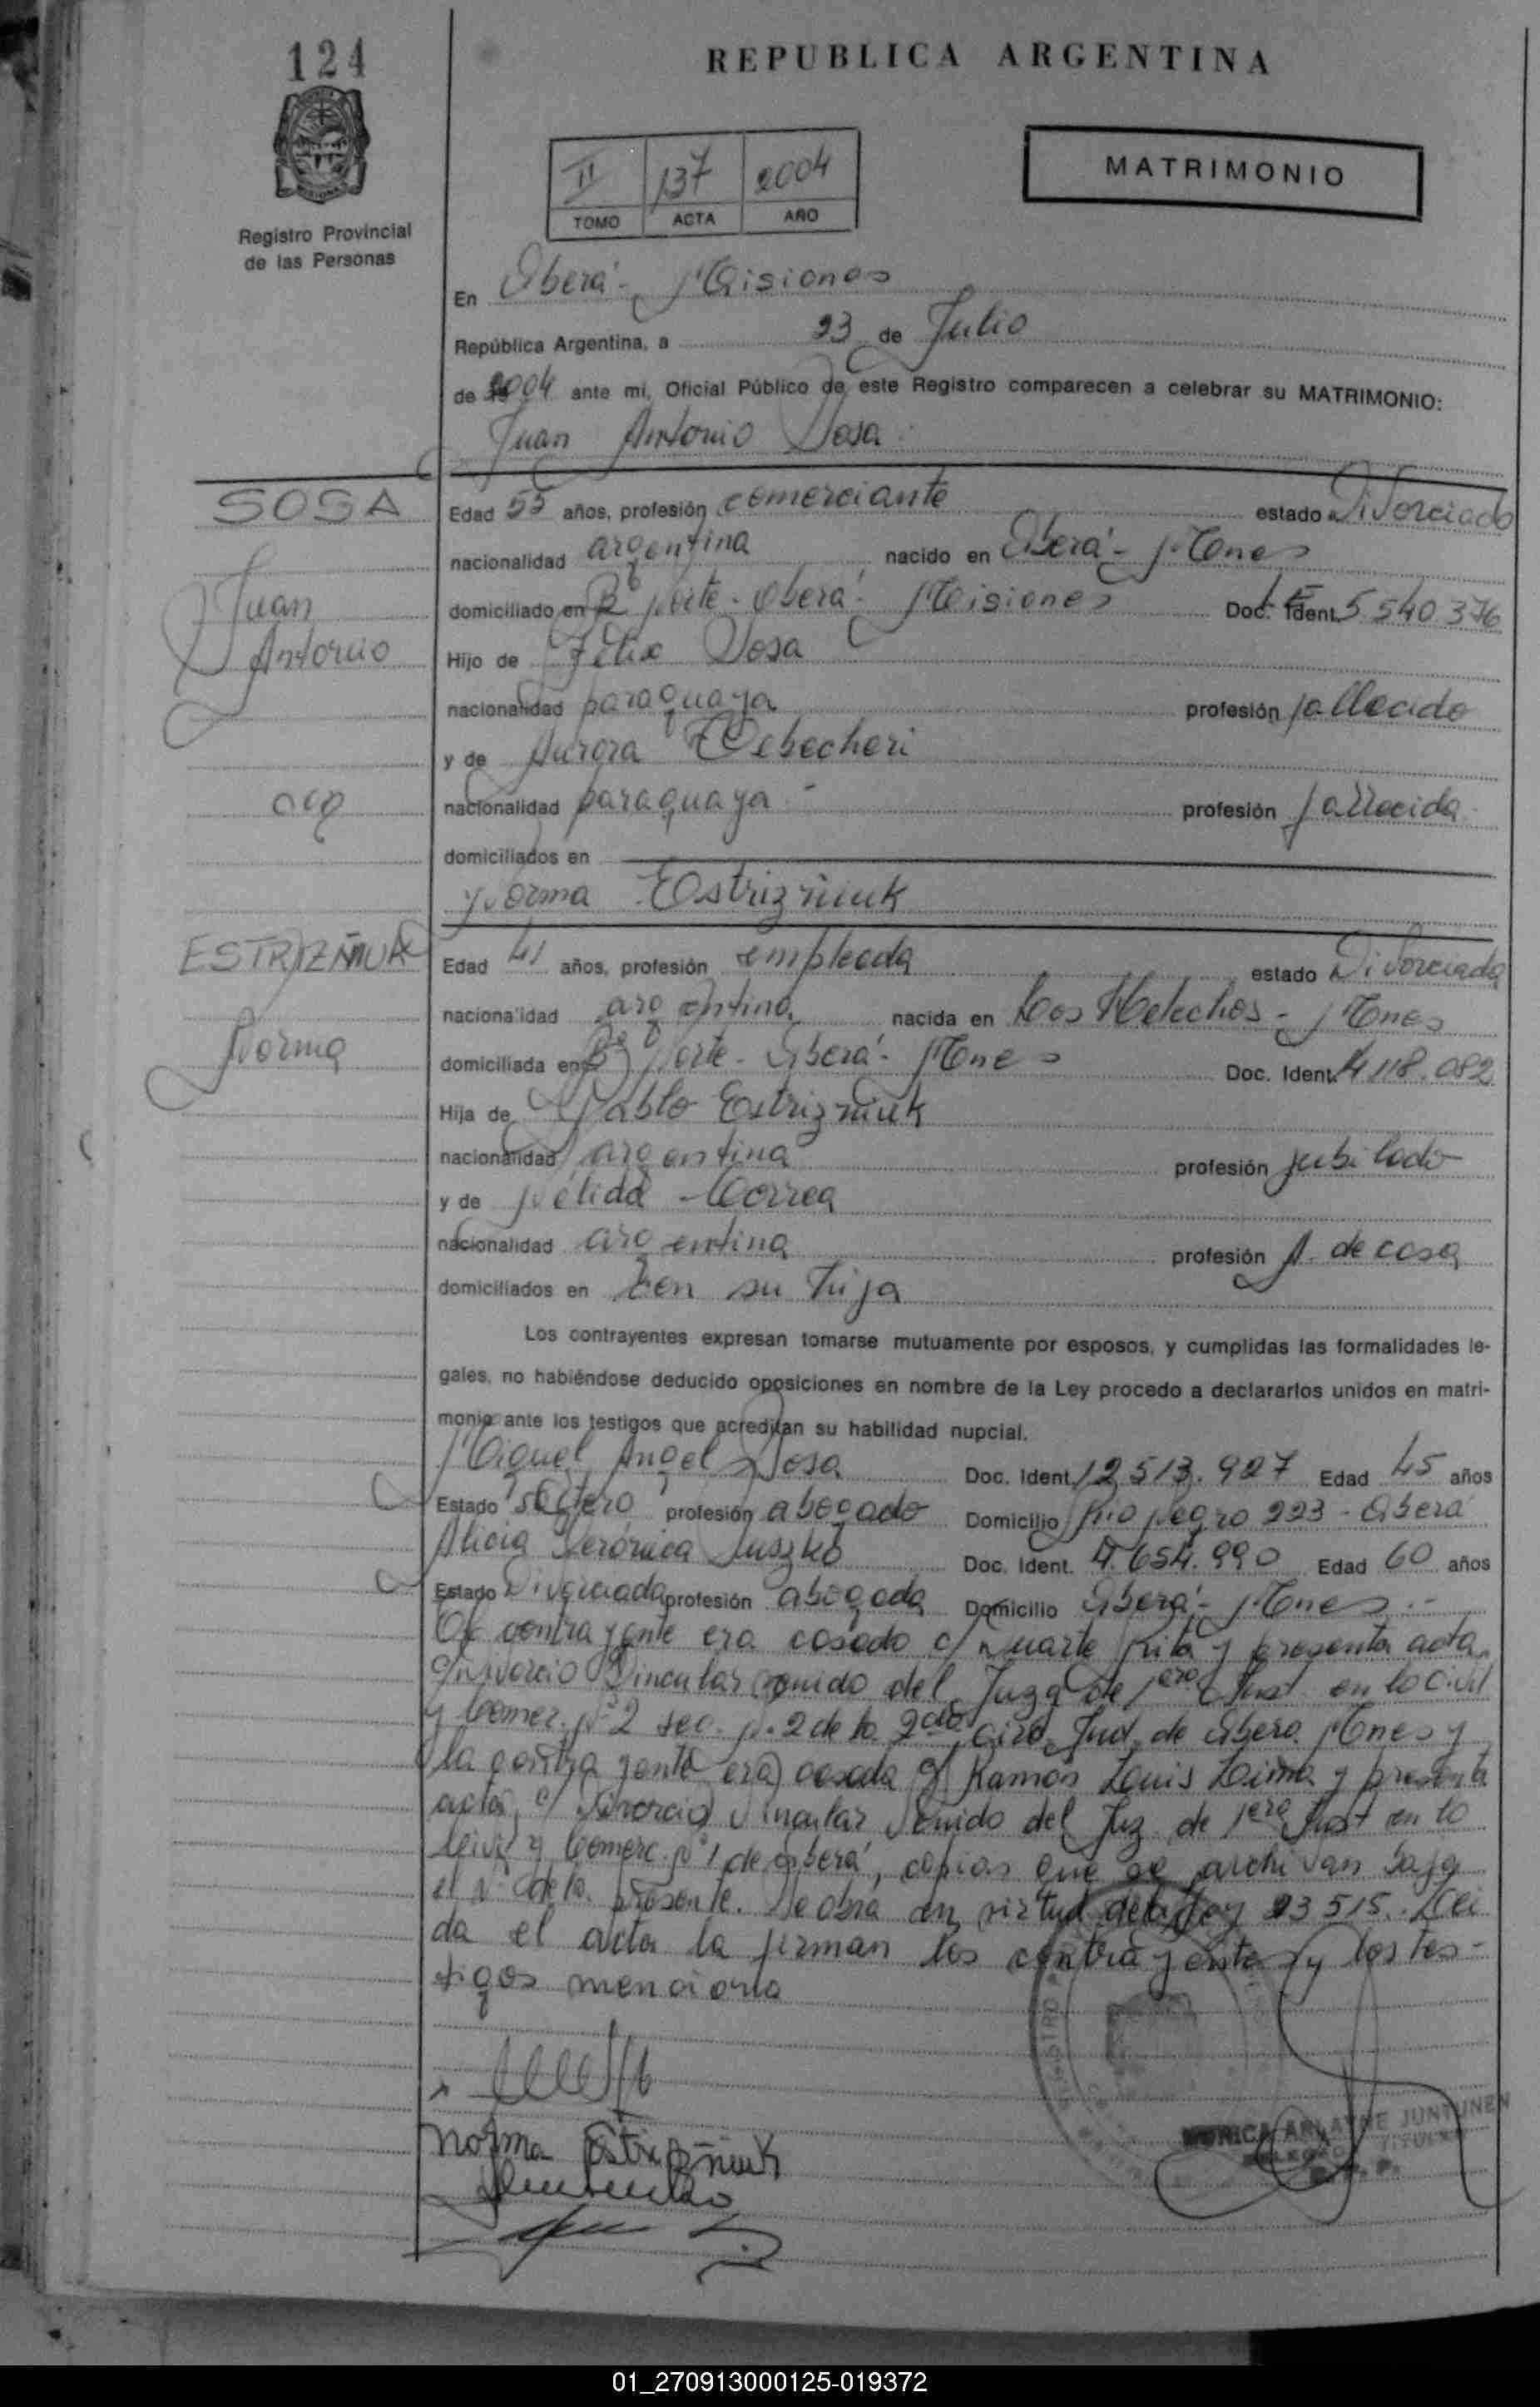 124
REPUBLICA ARGENTINA
II 137 2004
TOMO ACTA AÑO
MATRIMONIO
Registro Provincial
de las Personas
En Oberá - Misiones
República Argentina, a 23 de Julio
de 2004 ante mi, Oficial Público de este Registro comparecen a celebrar su MATRIMONIO:
Juan Antonio Sosa
SOSA
Juan
Antonio
Edad 55 años, profesión comerciante estado Divorciado
nacionalidad argentina nacido en Oberá - Mones
domiciliado en Bº Norte - Oberá - Misiones Doc. Ident. 5.540.376
Hijo de Félix Sosa
nacionalidad paraguaya profesión fallecido
y de Aurora
nacionalidad paraguaya profesión fallecida
domiciliados en
Norma Estrizñiuk
ESTRIZÑIUK
Norma
Edad 41 años, profesión empleada estado Divorciada
nacionalidad argentina nacida en Los Helechos - Mones
domiciliada en Bº Norte - Oberá - Mones Doc. Ident. 14.118.082
Hija de Pablo Estrizñiuk
nacionalidad argentina profesión jubilado
y de Nélida Correa
nacionalidad argentina profesión A. de casa
domiciliados en con su hija
Los contrayentes expresan tomarse mutuamente por esposos, y cumplidas las formalidades le-
gales, no habiéndose deducido oposiciones en nombre de la Ley procedo a declararlos unidos en matri-
monio ante los testigos que acreditan su habilidad nupcial.
Miguel Angel Sosa Doc. Ident. 12.513.927 Edad 45 años
Estado soltero profesión abogado Domicilio Rio Negro 223 - Oberá
Alicia Verónica Juszko Doc. Ident. 4.654.990 Edad 60 años
Estado Divorciada profesión abogada Domicilio Oberá - Mones.-
El contrayente era casado c/ Duarte Rita y presenta acta
c/ Divorcio Vincular venido del Juzg de 1era Inst en lo Civil
y Comer. Nº 2 sec. Nº 2 de la 2da circ Jud. de Oberá Mones y
la contrayente era casada c/ Ramón Luis Lima y presenta
acta c/ Divorcio Vincular venido del Juz de 1era Inst en lo
Civil y Comerc. Nº 1 de Oberá, copias que se archivan bajo
el Nº de la presente. Se obra en virtud de la Ley 23515. Lei
da el acta la firman los contrayentes y los tes-
tigos menciona
Norma Estrizñiuk
MONICA ARLAYNE JUNTUNEN
TITULAR
01_270913000125-019372